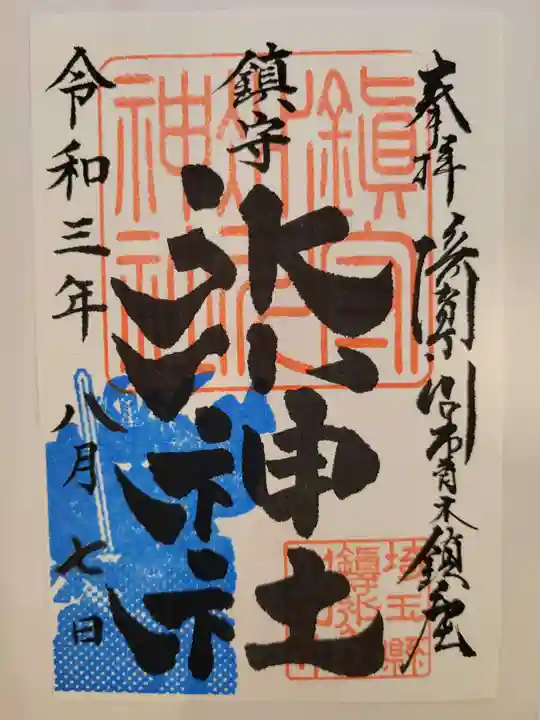 奉拝 埼玉県川口市青木鎮座
鎮守
氷川神社
令和三年八月七日
鎮守氷川神社
埼玉縣